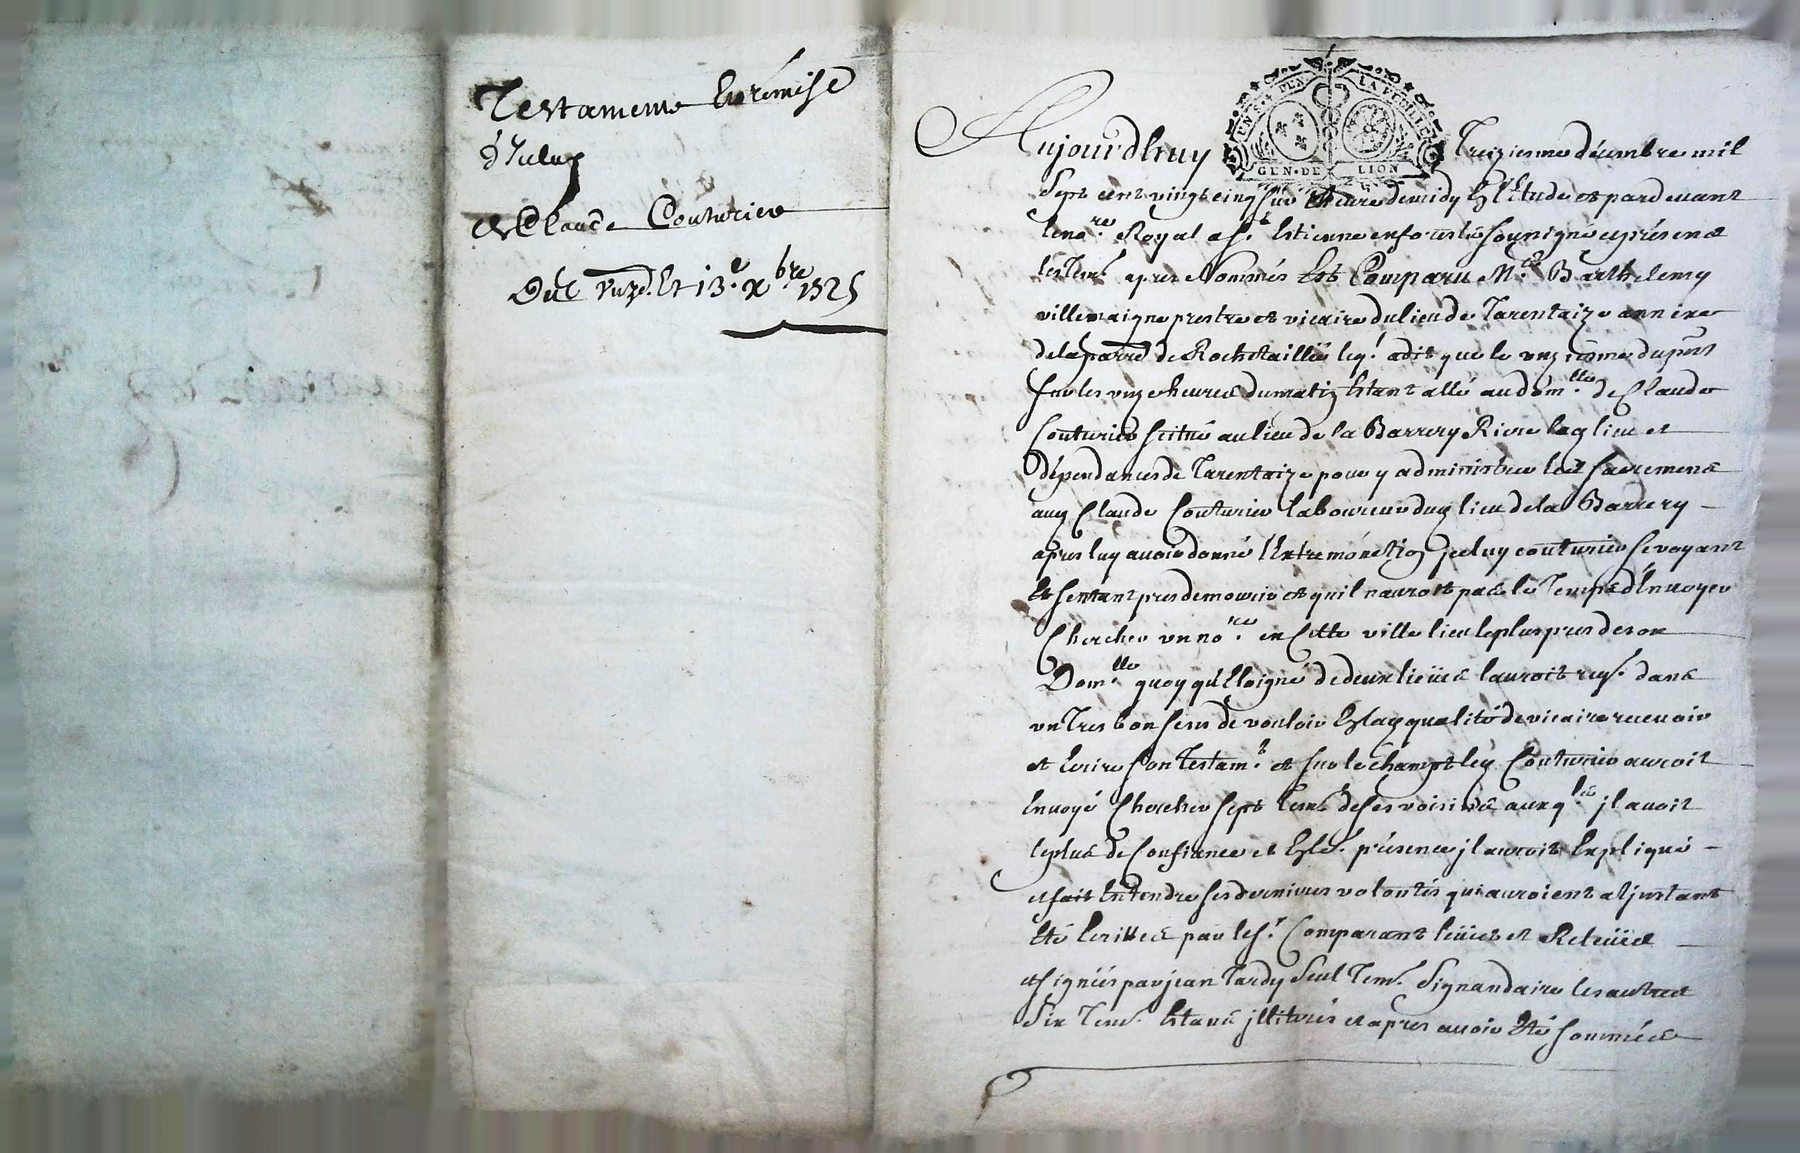 Testament Et remise
d'Iceluy
de Claude Couturier
Du unze. Et 13.e Xbre 1725
UN S. 4 DEN. LA FEUILLE
GEN. DE LION
Aujourdhuy Treizieme décembre mil
Sept cent vingt cinq sur heure de midy En L'Etude et pardevant
le nore. Royal a St. Estienne en forests soubsigné et présence
des Tem. apres Nommés Est Comparu Mre. Barthelemy
villemaigne prestre et vicaire du lieu de Tarentaize annixe
de la parre de Rochetaillée leql. a dit que le unzieme du pnt
sur les unze heures du matin Estant allé au dom.lle de Claude
Couturier scitué au lieu de la Barrery Rivre laq lieu et
dépendances de Tarentaize pour y administrer les sacremens
auq Claude Couturier laboureur duq lieu de la Barrery
apres luy avoir donné l'Extremónction Iceluy couturier se voyant
et sentant pres de mourir et quil nauroit pas le Temps d'Envoyer
Chercher un nore. en Cette ville lieu le plus pres de son
Dom.lle quoy qu'Eloigné de deux lieües lauroit reqs. dans
un Tres bon sens de vouloir En laq qualité de vicaire recevoir
et Ecrire son Testamt. et sur le champt leq Couturier auroit
Envoyé Chercher sept Tem. de ses voisins auxqls. jl avoit
le plus de Confiance et En le. présence jl auroit Expliqué
et fait Entendre ses dernieres volontés qui auroient a l'jnstant
Eté Ecrittes par le Sr. Comparant leües et Releües
et signées par jean Tardy seul Tem. Signandaire les autres
Six Tem. Etans jllitrés et apres avoir Eté sommés